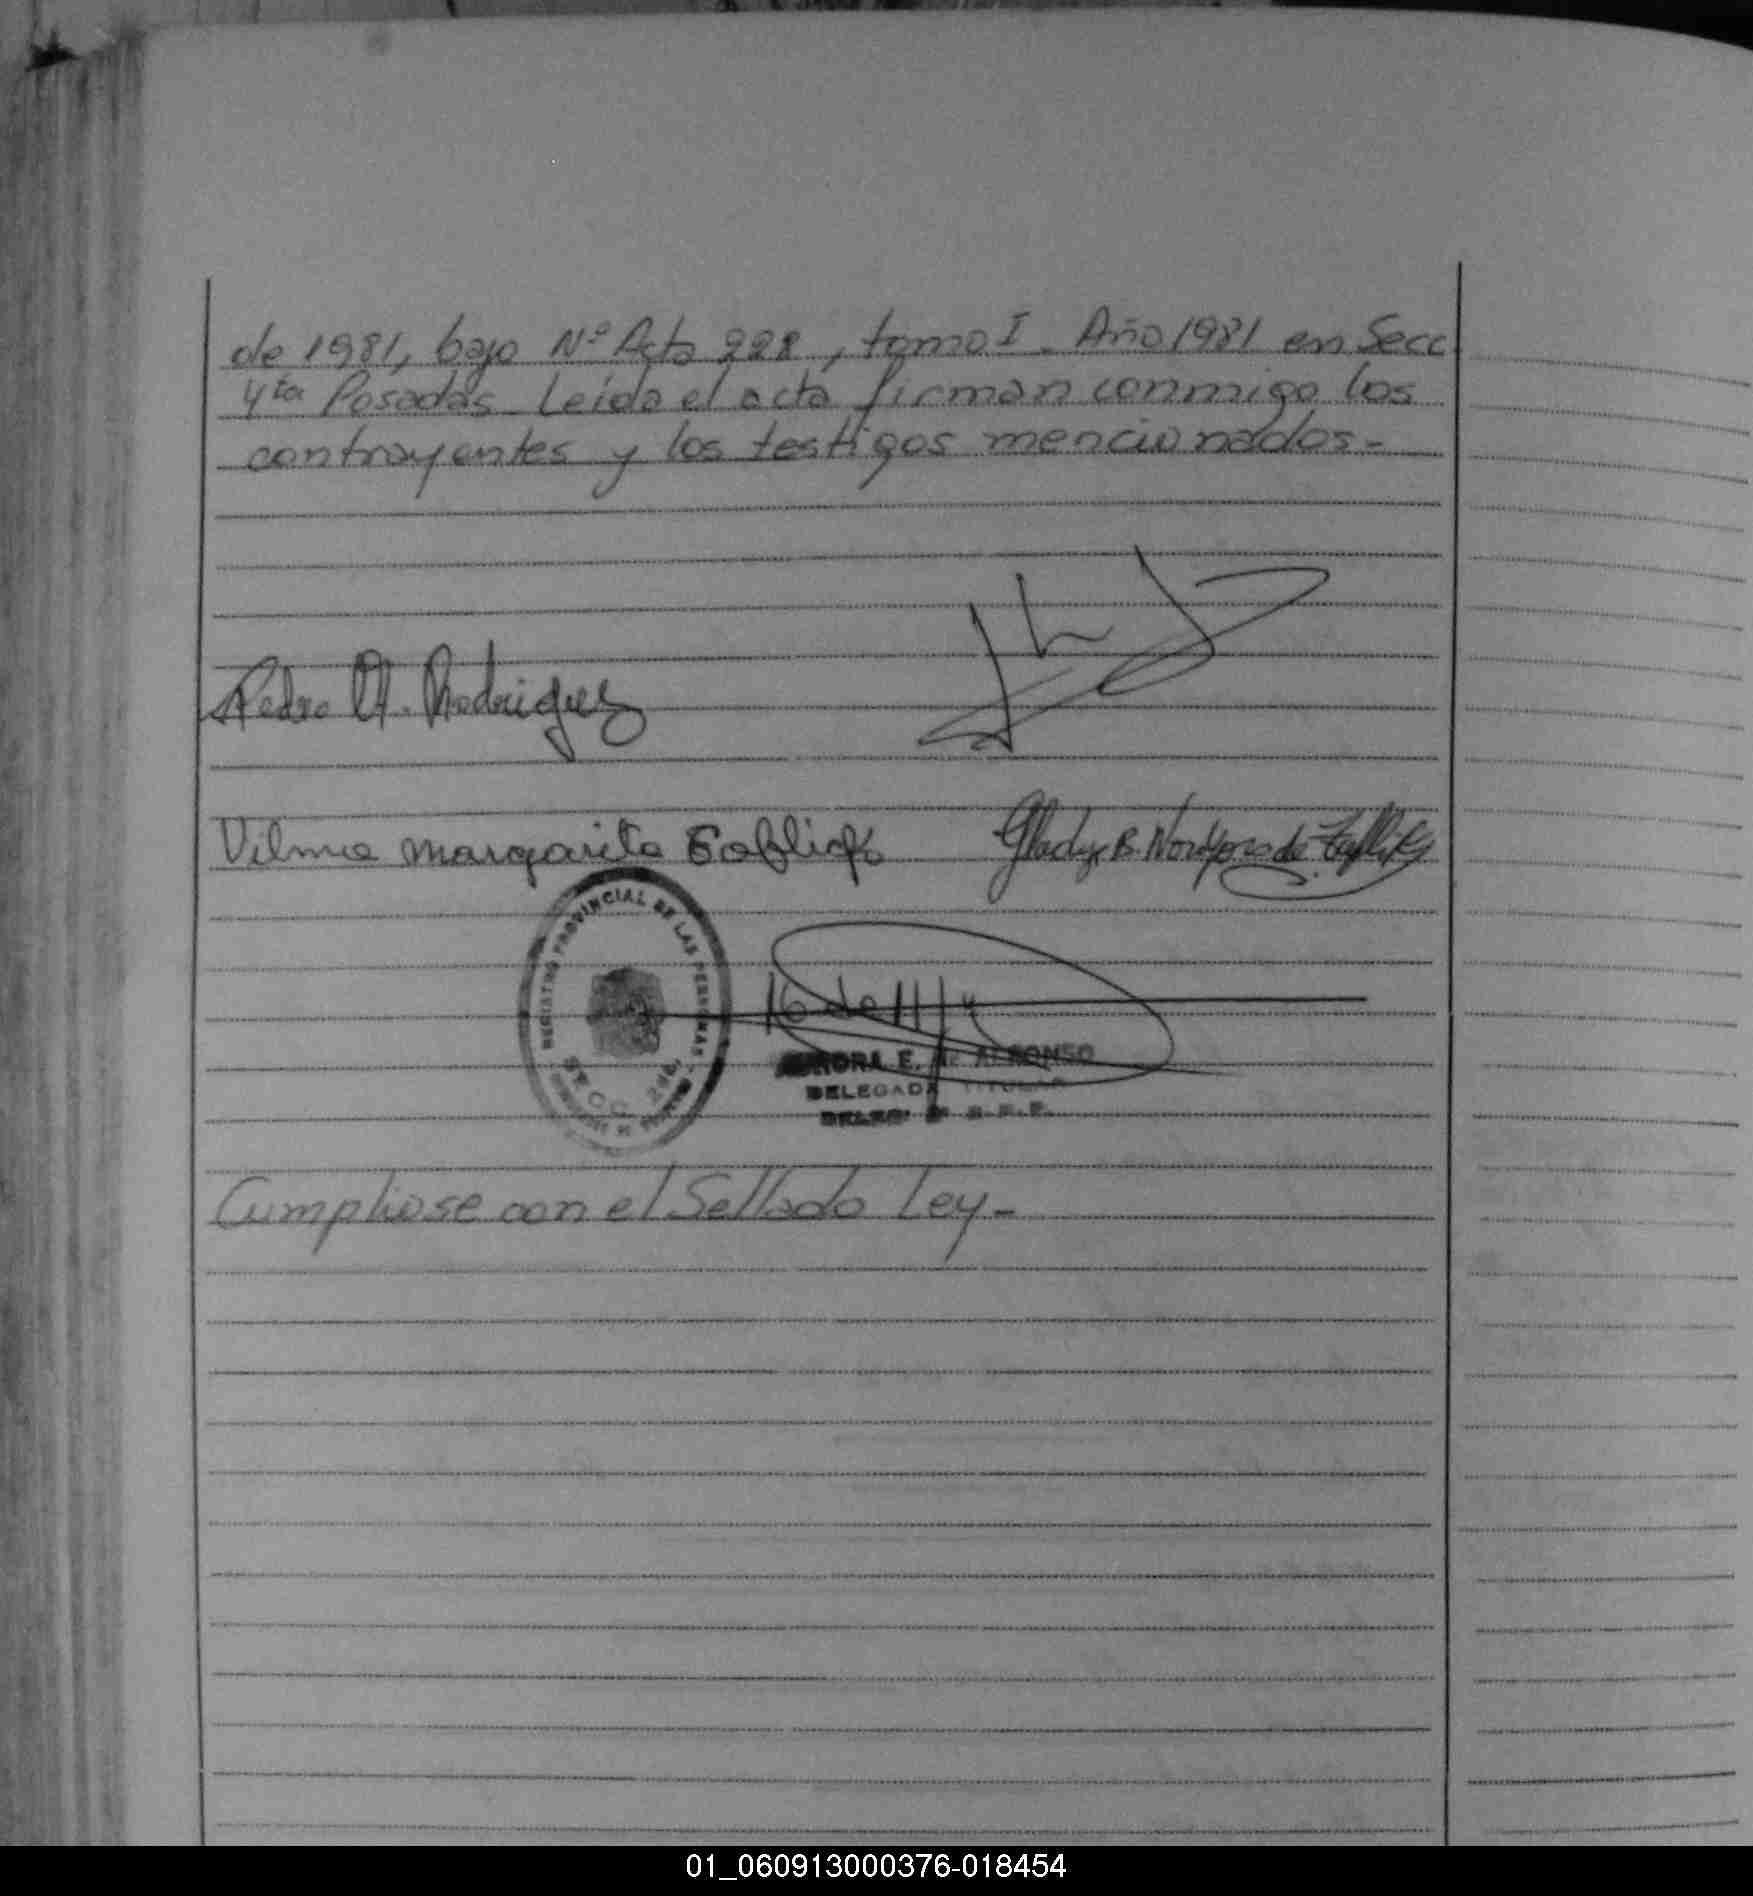 de 1981, bajo Nº Acta 228, tomo I. Año 1981 en Secc.
4ta Posadas. Leída el acta firman conmigo los
contrayentes y los testigos mencionados.-
Pedro A. Rodriguez
Vilma Margarita
Gladys B. de
REGISTRO PROVINCIAL DE LAS PERSONAS
SECC. 2da.
16 de
E. de ALFONSO
DELEGADA TITULAR
Cumpliose con el Sellado Ley.-
01_060913000376-018454